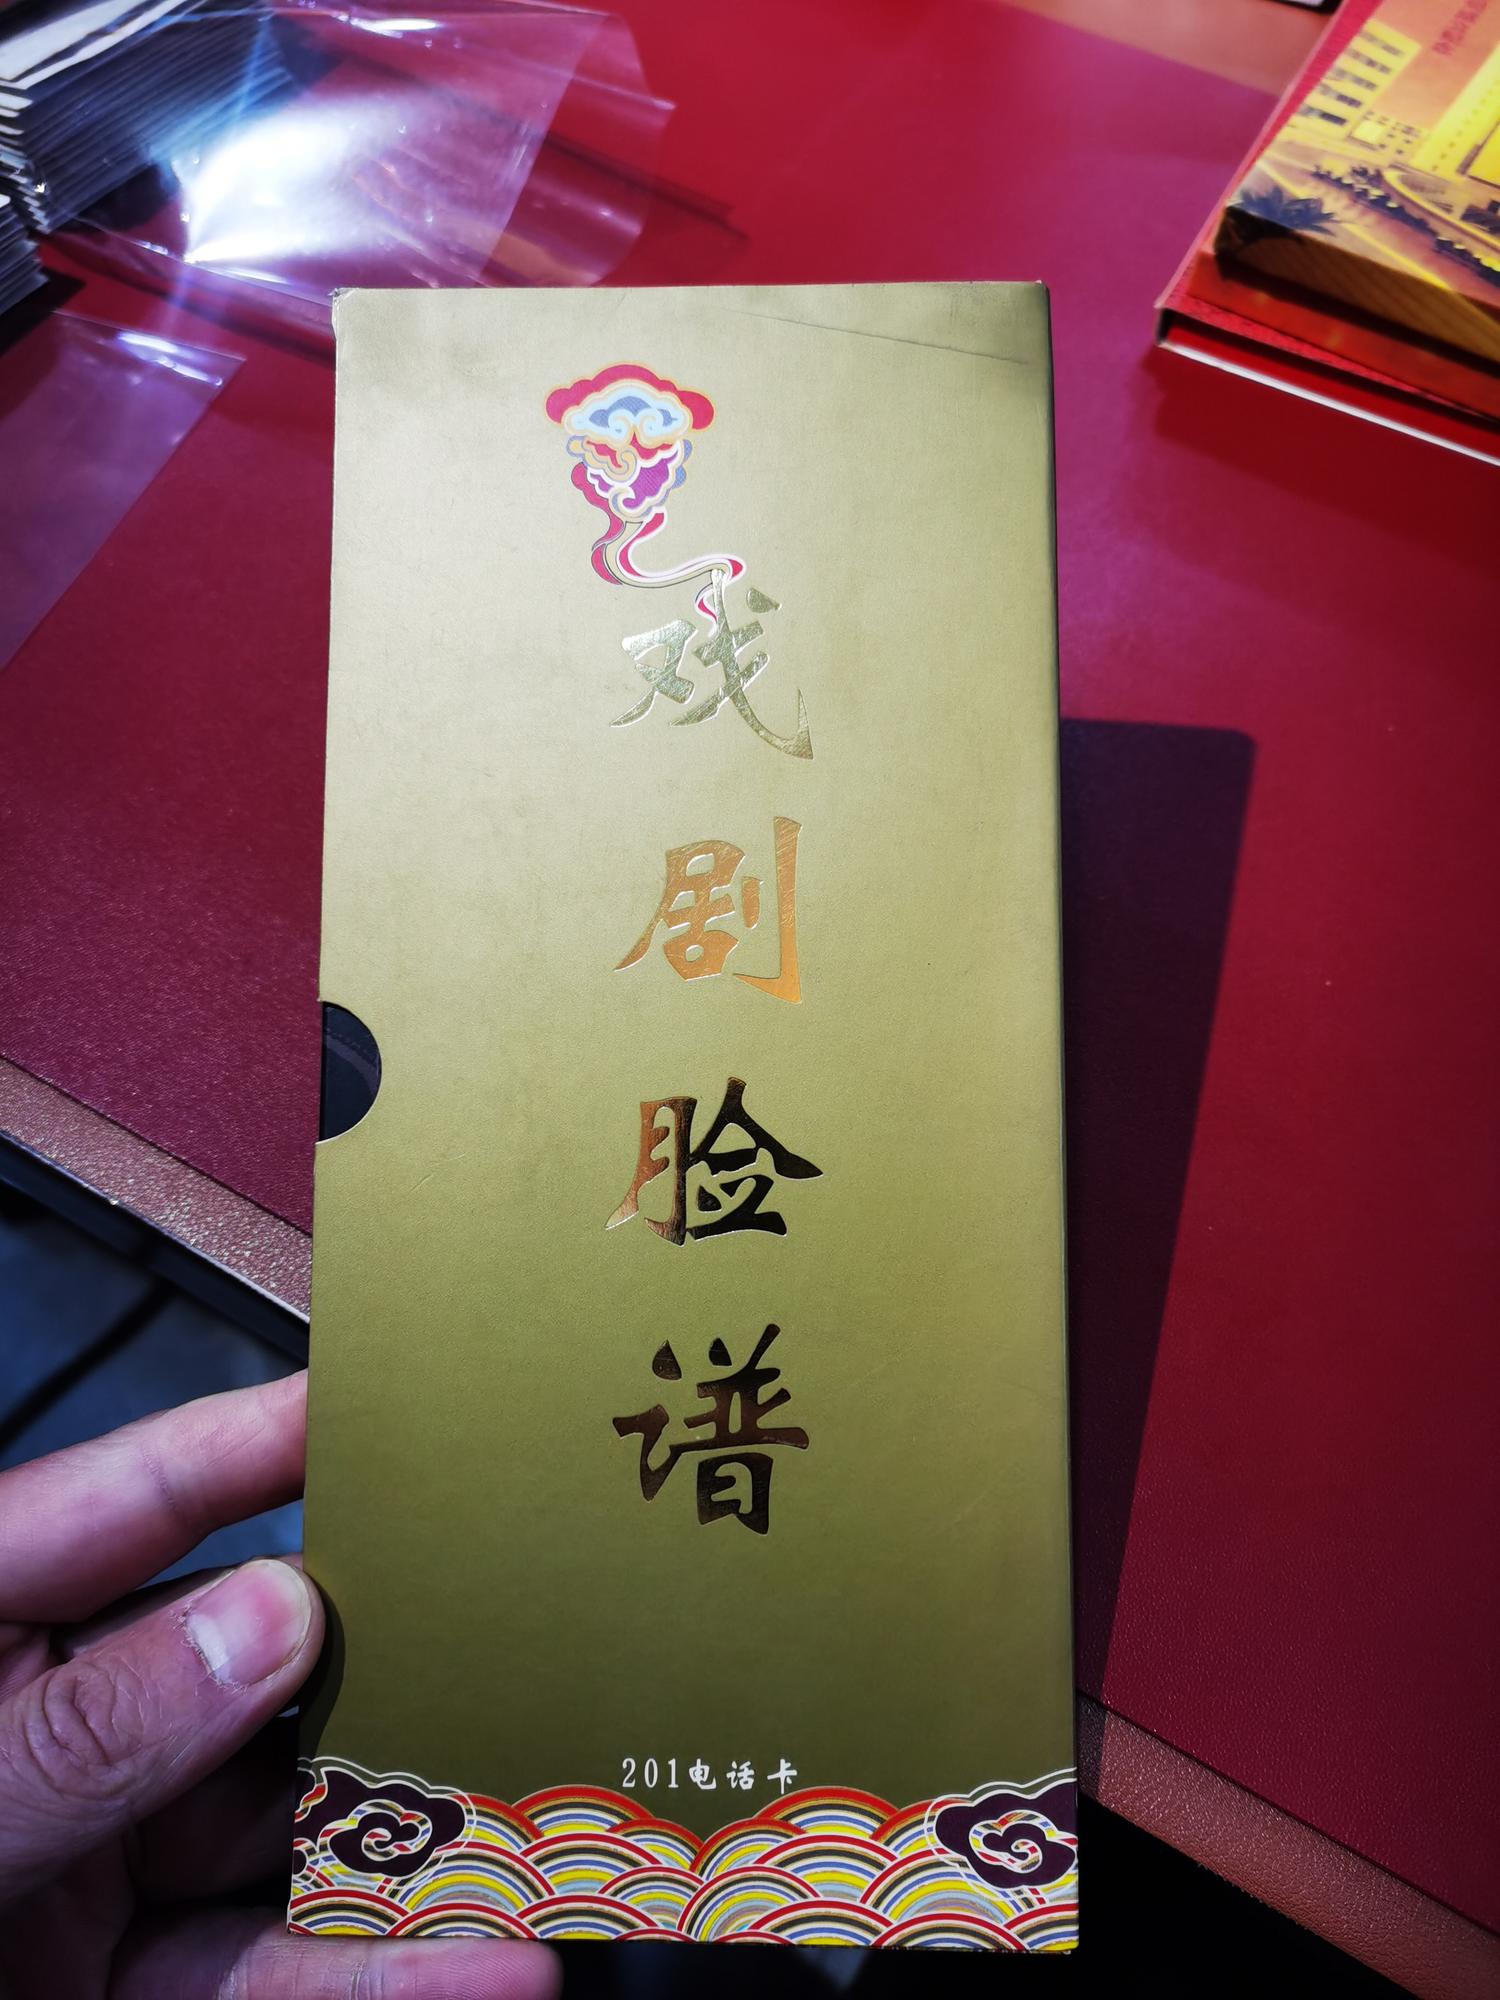 戏剧脸谱
201电话卡